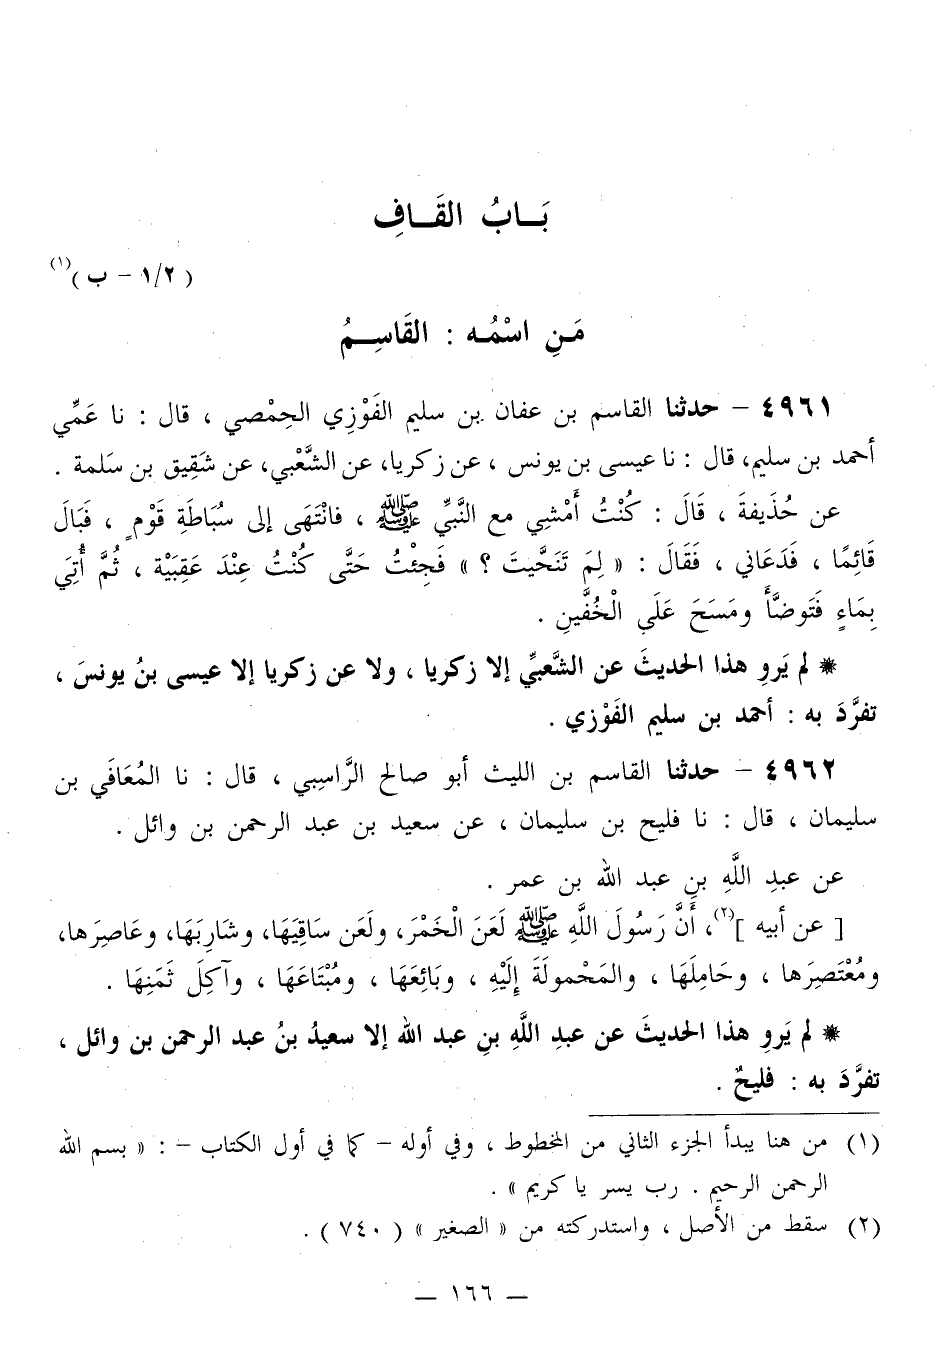 بَـابُ القَـافِ
( ١/٢ - ب )(١)
مَنِ اسْمُه : القَاسِـمُ
٤٩٦١ - حدثنا القاسم بن عفان بن سليم الفَوْزِي الحِمْصي ، قال : نا عَمِّي
أحمد بن سليم، قال : نا عيسى بن يونس ، عن زكريا، عن الشَّعْبي، عن شَقِيق بن سَلمة .
عن حُذَيفةَ ، قَالَ : كُنْتُ أَمْشِي مع النَّبيِّ ﷺ ، فانْتَهَى إلى سُبَاطَةِ قَوْمٍ ، فَبَالَ
قَائِمًا ، فَدَعَاني ، فَقَالَ : « لِمَ تَنَحَّيتَ ؟ » فَجِئتُ حَتَّى كُنْتُ عِنْدَ عَقِبَيْة ، ثُمَّ أُتِي
بِمَاءٍ فَتَوضَّأَ ومَسَحَ عَلَى الْخُفَّينِ .
* لم يَروِ هذا الحديثَ عن الشَّعبيِّ إلا زكريا ، ولا عن زكريا إلا عيسى بنُ يونسَ ،
تفرَّدَ به : أحمد بن سليم الفَوْزي .
٤٩٦٢ - حدثنا القاسم بن الليث أبو صالح الرَّاسِبي ، قال : نا المُعَافَي بن
سليمان ، قال : نا فليح بن سليمان ، عن سعيد بن عبد الرحمن بن وائل .
عن عبدِ اللَّهِ بنِ عبد الله بن عمر .
[ عن أبيه ](٢)، أَنَّ رَسُولَ اللَّهِ ﷺ لَعَنَ الْخَمْرَ، ولَعَن سَاقِيَهَا، وشَارِبَهَا، وعَاصِرَها،
ومُعْتَصِرَها ، وحَامِلَهَا ، والمَحْمولَةَ إِلَيْهِ ، وبَائِعَهَا ، ومُبْتَاعَهَا ، وآكِلَ ثَمَنِهَا .
* لم يَروِ هذا الحديثَ عن عبدِ اللَّهِ بنِ عبد الله إلا سعيدُ بنُ عبد الرحمن بن وائل ،
تفرَّدَ به : فليحٌ .
(١) من هنا يبدأ الجزء الثاني من المخطوط ، وفي أوله - كما في أول الكتاب - : « بسم الله
الرحمن الرحيم . رب يسر يا كريم » .
(٢) سقط من الأصل ، واستدركته من « الصغير » ( ٧٤٠ ) .
— ١٦٦ —